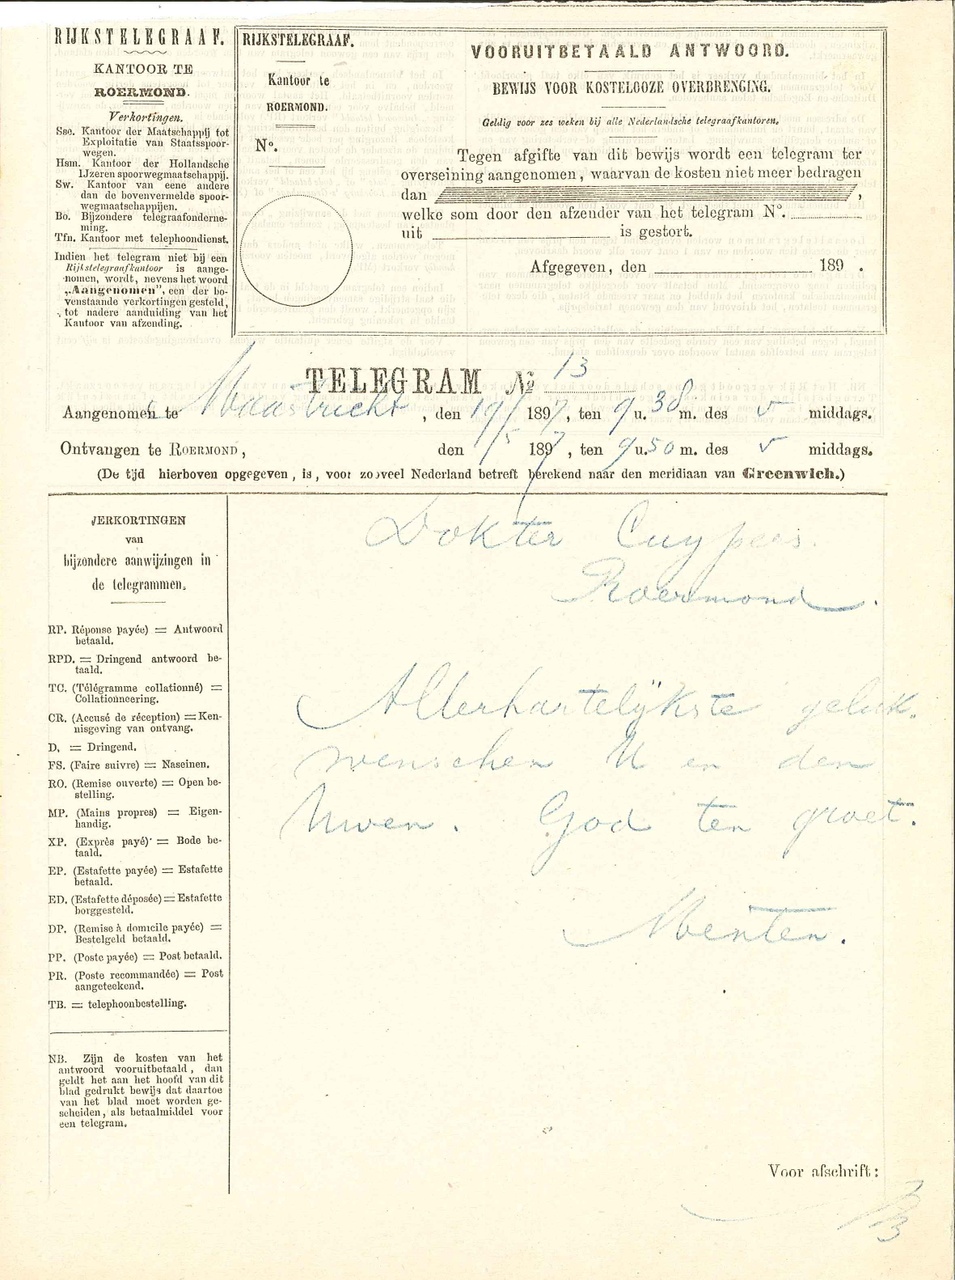 RIJKSTELEGRAAF.
KANTOOR TE
ROERMOND.
Verkortingen.
Sss. Kantoor der Maatschappij tot
Exploitatie van Staatsspoor-
wegen.
Hsm. Kantoor der Hollandsche
IJzeren spoorwegmaatschappij.
Sw. Kantoor van eene andere
dan de bovenvermelde spoor-
wegmaatschappijen.
Bo. Bijzondere telegraafonderne-
ming.
Tfn. Kantoor met telephoondienst.
Indien het telegram niet bij een
Rijkstelegraafkantoor is aange-
nomen, wordt, nevens het woord
„Aangenomen”, een der bo-
venstaande verkortingen gesteld,
tot nadere aanduiding van het
Kantoor van afzending.
RIJKSTELEGRAAF.
Kantoor te
ROERMOND.
N°.
VOORUITBETAALD ANTWOORD.
BEWIJS VOOR KOSTELOOZE OVERBRENGING.
Geldig voor zes weken bij alle Nederlandsche telegraafkantoren.
Tegen afgifte van dit bewijs wordt een telegram ter
overseining aangenomen, waarvan de kosten niet meer bedragen
dan ,
welke som door den afzender van het telegram N°.
uit is gestort.
Afgegeven, den 189 .
TELEGRAM No 13
Aangenomen te Maastricht, den 19/5 1897, ten 9 u. 38 m. des v middags.
Ontvangen te ROERMOND, den 1897, ten 9 u. 50 m. des v middags.
(De tijd hierboven opgegeven, is, voor zooveel Nederland betreft berekend naar den meridiaan van Greenwich.)
VERKORTINGEN
van
bijzondere aanwijzingen in
de telegrammen.
RP. Réponse payée) = Antwoord
betaald.
RPD. = Dringend antwoord be-
taald.
TC. (Télégramme collationné) =
Collationneering.
CR. (Accusé de réception) = Ken-
nisgeving van ontvang.
D. = Dringend.
FS. (Faire suivre) = Naseinen.
RO. (Remise ouverte) = Open be-
stelling.
MP. (Mains propres) = Eigen-
handig.
XP. (Exprès payé) = Bode be-
taald.
EP. (Estafette payée) = Estafette
betaald.
ED. (Estafette déposée) = Estafette
borggesteld.
DP. (Remise à domicile payée) =
Bestelgeld betaald.
PP. (Poste payée) = Post betaald.
PR. (Poste recommandée) = Post
aangeteekend.
TB. = telephoonbestelling.
NB. Zijn de kosten van het
antwoord vooruitbetaald, dan
geldt het aan het hoofd van dit
blad gedrukt bewijs dat daartoe
van het blad moet worden ge-
scheiden, als betaalmiddel voor
een telegram.
Dokter Cuypers.
Roermond.
Allerhartelijkste geluk.
wenschen U en den
Uwen. God ten groet.
Menten.
Voor afschrift: